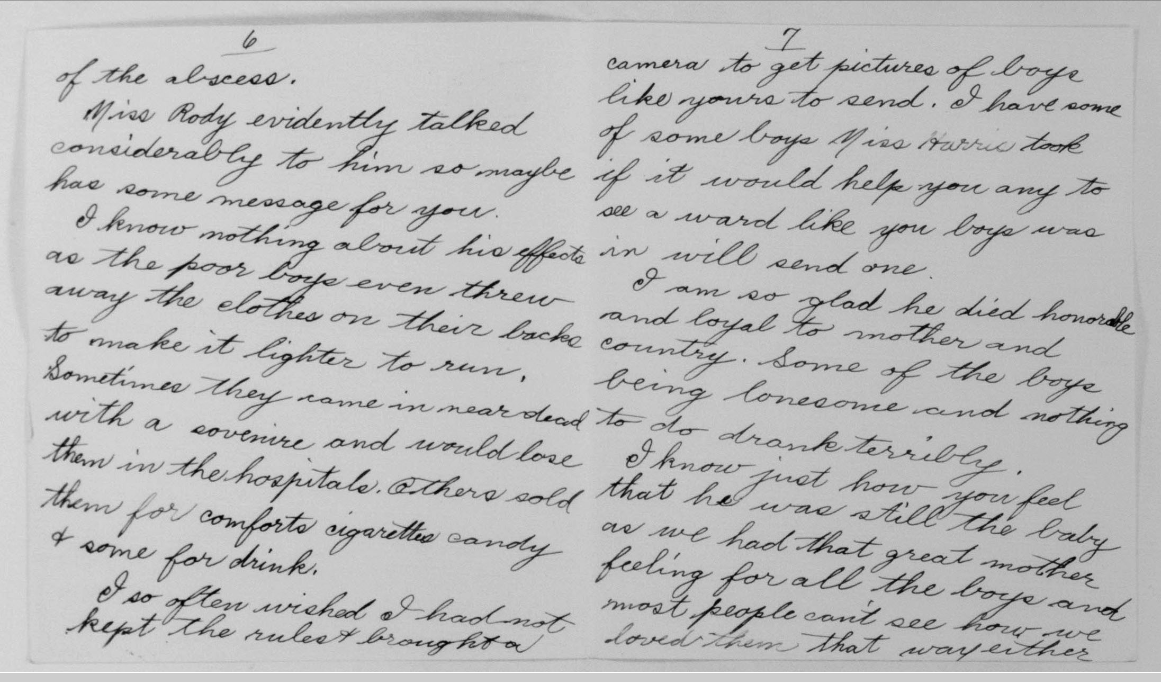 6
of the abscess.
Miss Rody evidently talked
considerably to him so maybe
has some message for you.
I know nothing about his effects
as the poor boys even threw
away the clothes on their backs
to make it lighter to run.
Sometimes they came in near dead
with a sovenire and would lose
them in the hospitals. Others sold
them for comforts cigarettes candy
& some for drink.
I so often wished I had not
kept the rules & brought a
7
camera to get pictures of boys
like yours to send. I have some
of some boys Miss Harris took
if it would help you any to
see a ward like you boys was
in will send one.
I am so glad he died honorable
and loyal to mother and
country. Some of the boys
being lonesome and nothing
to do drank terribly.
I know just how you feel
that he was still the baby
as we had that great mother
feeling for all the boys and
most people can't see how we
loved them that way either